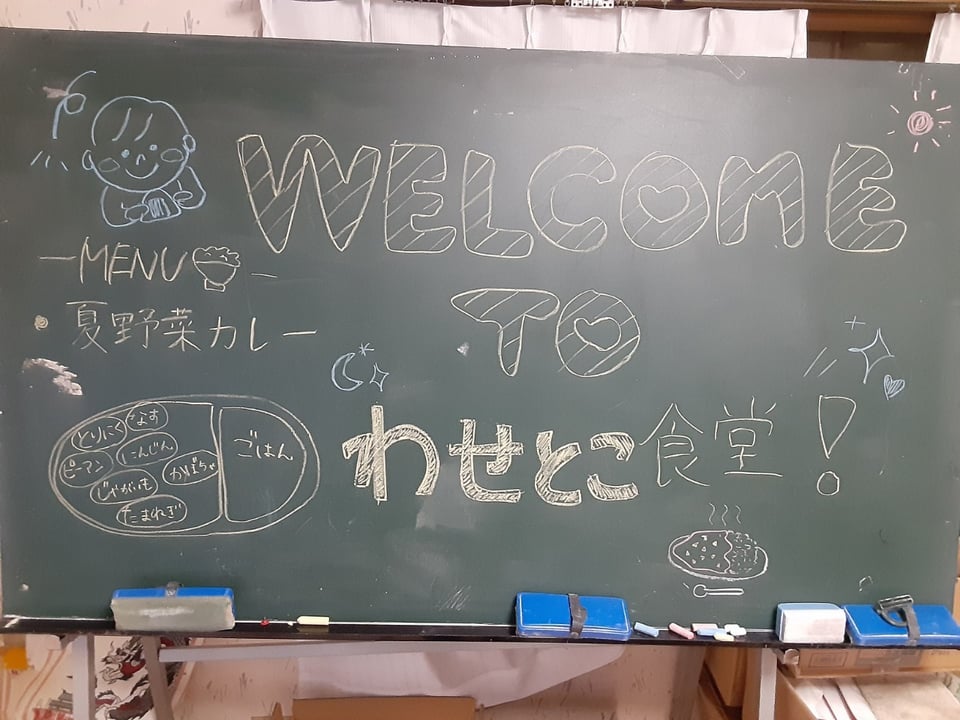 WELCOME
TO
わせとこ食堂!
MENU
・夏野菜カレー
とりにく
なす
ピーマン
にんじん
かぼちゃ
じゃがいも
たまねぎ
ごはん